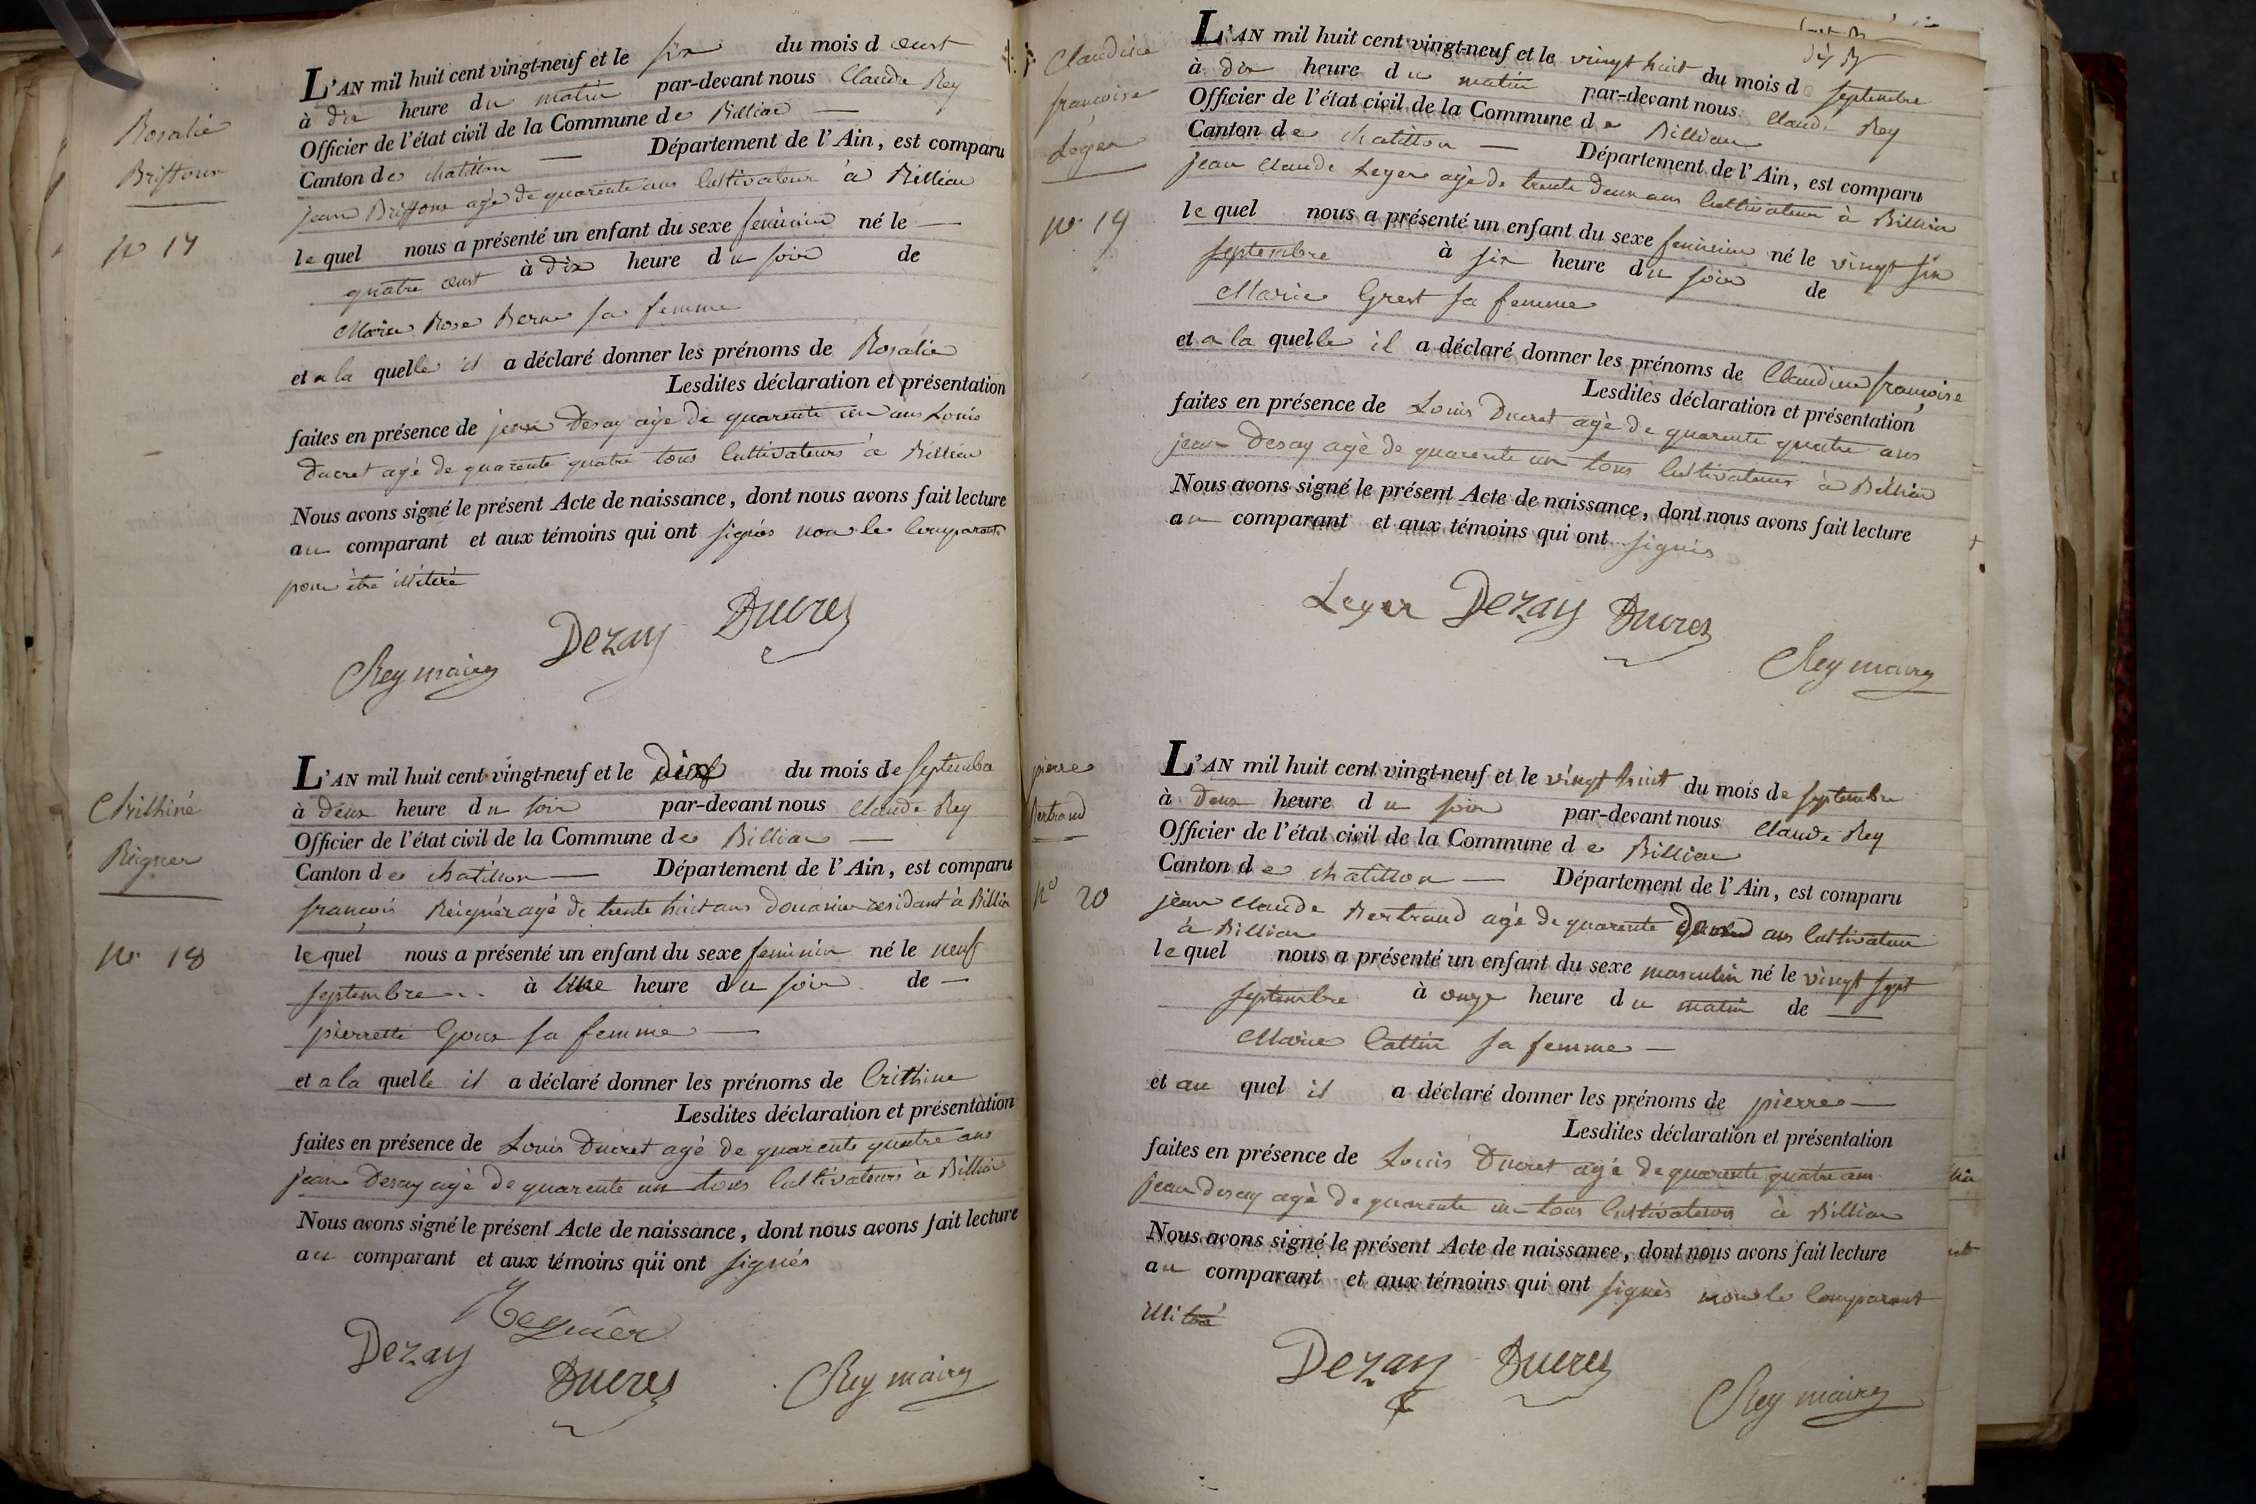 Rosalie
Briffour
N° 17
L'AN mil huit cent vingt-neuf et le six du mois d oust
à dix heure du matin par-devant nous Claude Rey
Officier de l'état civil de la Commune de Billiat
Canton de chatillon Département de l'Ain, est comparu
jean agé de quarente ans Cultivateur à Billiat
lequel nous a présenté un enfant du sexe feminin né le
quatre oust à dix heure du soir de
Marie Rose Berne sa femme
et a la quelle il a déclaré donner les prénoms de Rosalie
Lesdites déclaration et présentation
faites en présence de jean Desay agé de quarente un ans Louis
Ducret agé de quarente quatre tous Cultivateurs à Billiat
Nous avons signé le présent Acte de naissance, dont nous avons fait lecture
au comparant et aux témoins qui ont signés non le Comparant
pour être illitéré
Dezay Ducret
Rey maire
Reigner
N° 18
L'AN mil huit cent vingt-neuf et le du mois de septembre
à deux heure du soir par-devant nous Claude Rey
Officier de l'état civil de la Commune de Billiat
Canton de chatillon Département de l'Ain, est comparu
françois Reignér agé de trente huit ans Douanier residant à Billiat
lequel nous a présenté un enfant du sexe feminin né le neuf
septembre à une heure du soir de
pierrette Goux sa femme
et a la quelle il a déclaré donner les prénoms de
Lesdites déclaration et présentation
faites en présence de Louis Ducret agé de quarente quatre ans
jean Desay agé de quarente un tous Cultivateurs à Billiat
Nous avons signé le présent Acte de naissance, dont nous avons fait lecture
au comparant et aux témoins qui ont signés
Regnier
Dezay
Ducret Rey maire
Claudine
françoise
Leger
N° 19
L'AN mil huit cent vingt-neuf et le vingt huit du mois de septembre
à dix heure du matin par-devant nous Claude Rey
Officier de l'état civil de la Commune de Billiat
Canton de chatillon Département de l'Ain, est comparu
jean Claude Leger agé de trente deux ans Cultivateur à Billiat
lequel nous a présenté un enfant du sexe feminin né le vingt six
septembre à six heure du soir de
Marie Grest sa femme
et a la quelle il a déclaré donner les prénoms de Claudine françoise
Lesdites déclaration et présentation
faites en présence de Louis Ducret agé de quarente quatre ans
jean Desay agé de quarente un tous Cultivateurs à Billiat
Nous avons signé le présent Acte de naissance, dont nous avons fait lecture
au comparant et aux témoins qui ont signés
Leger Dezay Ducret
Rey maire
pierre
Bertrand
N° 20
L'AN mil huit cent vingt-neuf et le vingt huit du mois de septembre
à deux heure du soir par-devant nous Claude Rey
Officier de l'état civil de la Commune de Billiat
Canton de chatillon Département de l'Ain, est comparu
jean Claude Bertrand agé de quarente ans Cultivateur
à Billiat
lequel nous a présenté un enfant du sexe masculin né le vingt sept
septembre à onze heure du matin de
Marie Cattin sa femme
et au quel il a déclaré donner les prénoms de pierre
Lesdites déclaration et présentation
faites en présence de Louis Ducret agé de quarente quatre ans
jean desay agé de quarente un tous Cultivateurs à Billiat
Nous avons signé le présent Acte de naissance, dont nous avons fait lecture
au comparant et aux témoins qui ont signés non le Comparant
illitéré
Dezay Ducret
Rey maire